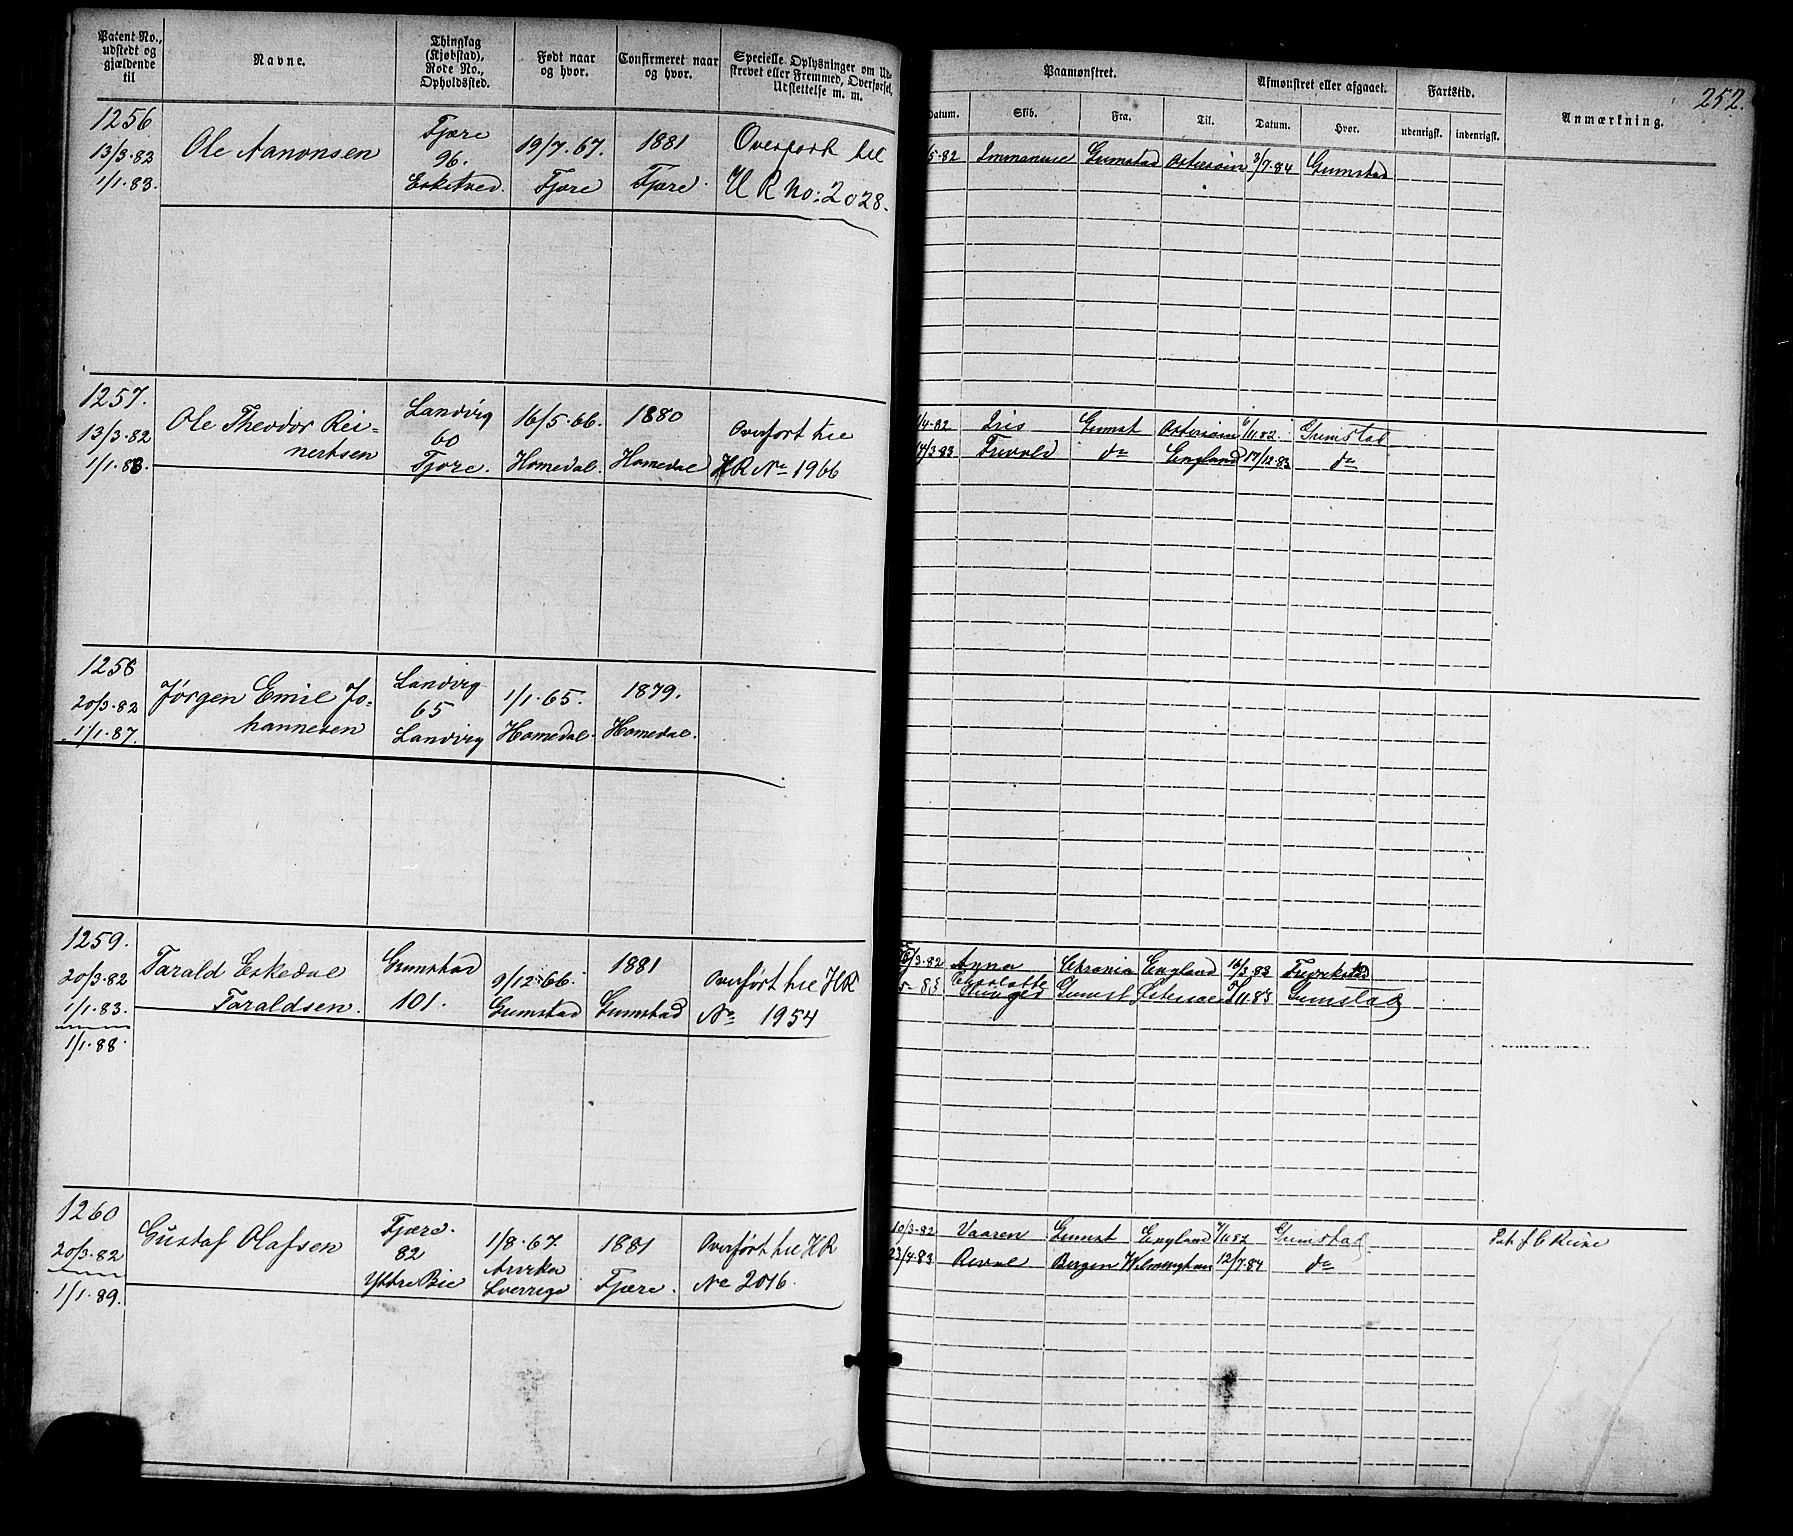 Patent No., udstedt og gjældende til
Navne.
Thinglag (Kjøbstad), Rode No., Opholdssted.
Født naar og hvor.
Confirmeret naar og hvor.
Specielle Oplysninger om Udskrevet eller Fremmed, Overførsel, Udslettelse m. m.
Paamønstret.
Datum.
Skib.
Fra.
Til.
Afmønstret eller afgaaet.
Datum.
Hvor.
Fartstid.
udenrigsk.
indenrigsk.
Anmærkning.
252.
1256
13/3.82
1/1.83.
Ole Aanonsen
Fjære
96.
Esketved.
19/7.67.
Fjære
1881
Fjære.
Overført til
H R No: 2028.
/5.82 Immanuel Grimstad Østersøen 3/7.84 Grimstad
1257.
13/3.82
1/1.88.
Ole Theodor Rei-
nertsen
Landvig
60
Fjære.
16/5.66.
Homedal.
1880
Homedal
Overført til
HR No 1966
/4.82 Iris Grimst Østersøen 6/11.82. Grimstad
14/3.83 Frivold do England 17/12.83 do
1258
20/3.82
1/1.87.
Jørgen Emil Jo-
hannesen
Landvig
65
Landvig
1/1.65.
Homedal.
1879.
Homedal.
1259.
20/3.82
1/1.83.
1/1.88.
Tarald Eskedal
Taraldsen.
Grimstad
101.
9/12.66.
Grimstad
1881
Grimstad
Overført til HR
No 1954
/3.82 Anna Chrania England 16/3.83 Fredrikstad
Charlotte
5-83 Grimst Østersøe /11.83 Grimstad
1260
20/3.82
1/1.89.
Gustaf Olafsen
Fjære.
82
Yttre Bie
1/8.67.
Arvika
Sverrige
1881
Fjære.
Overført til HR
No 2016.
10/3.82 Vaaren Grimst England /11.82 Grimstad
23/4.83 Bergen Wilmington 12/7.84 do